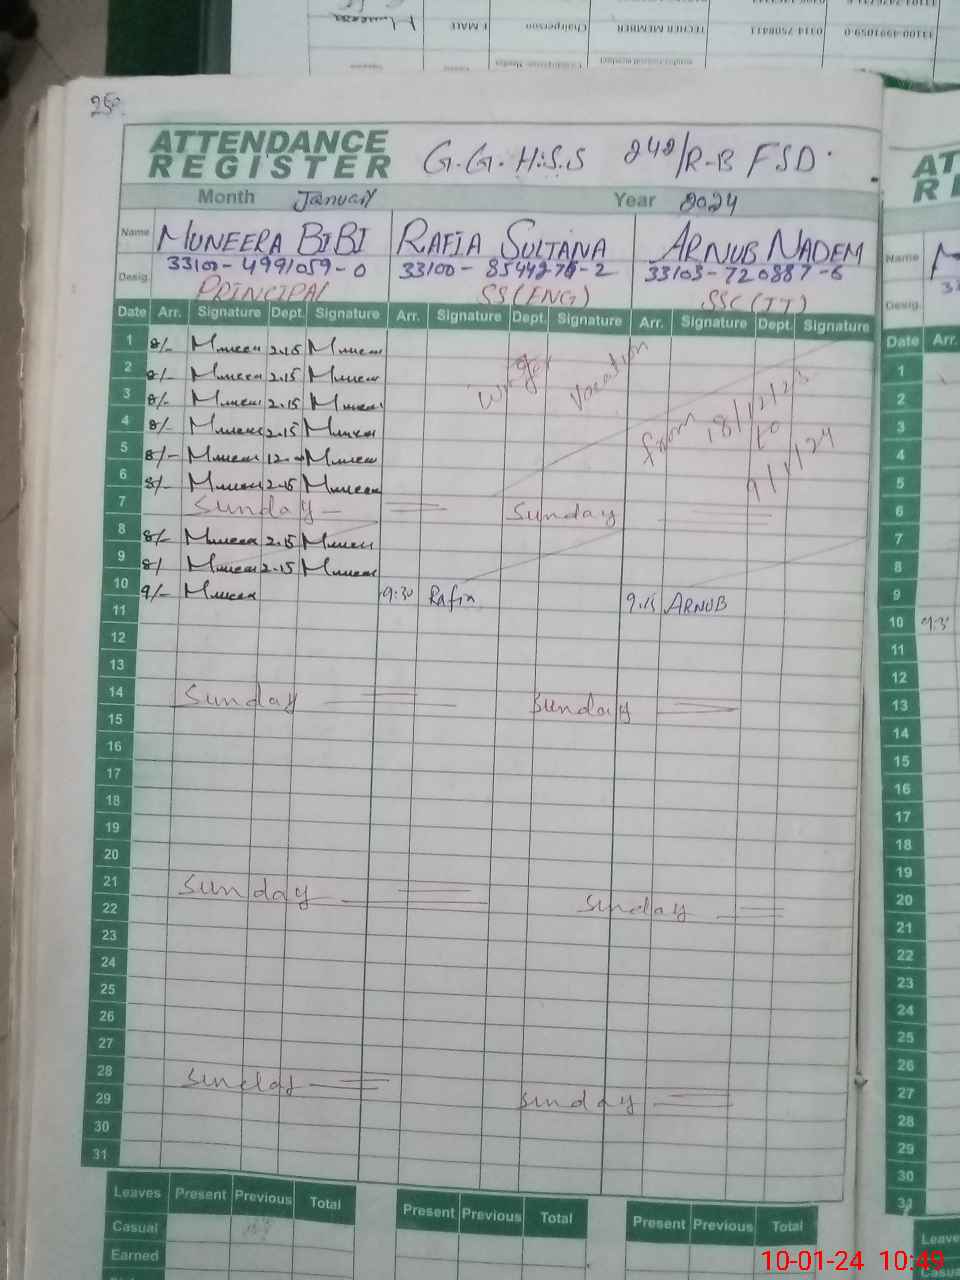 ATTENDANCE REGISTER G.G.H.S.S 242/R-B FSD.
Month January Year 2024
Name MUNEERA BIBI RAFIA SULTANA ARNUB NADEM
33100-4991059-0 33100-8544276-2 33103-720887-6
Desig. PRINCIPAL SS(ENG) SSC(IT)
Date Arr. Signature Dept. Signature Arr. Signature Dept. Signature Arr. Signature Dept. Signature
1 8/- Muneera 2.15 Muneera
2 8/- Muneera 2.15 Muneera Winter Vacation
3 8/- Muneera 2.15 Muneera from 18/12/23
4 8/- Muneera 2.15 Muneera to
5 8/- Muneera Muneera 9/1/24
6 8/- Muneera 2.15 Muneera
7 Sunday Sunday
8 8/- Muneera 2.15 Muneera
9 8/ Muneera 2.15 Muneera
10 9/- Muneera 9:30 Rafia 9.15 ARNUB
11
12
13
14 Sunday Sunday
15
16
17
18
19
20
21 Sunday Sunday
22
23
24
25
26
27
28 Sunday Sunday
29
30
31
Leaves Present Previous Total Present Previous Total Present Previous Total
Casual
Earned
Name
Desig.
Date Arr.
1
2
3
4
5
6
7
8
9
10 9:3
11
12
13
14
15
16
17
18
19
20
21
22
23
24
25
26
27
28
29
30
31
10-01-24 10:49